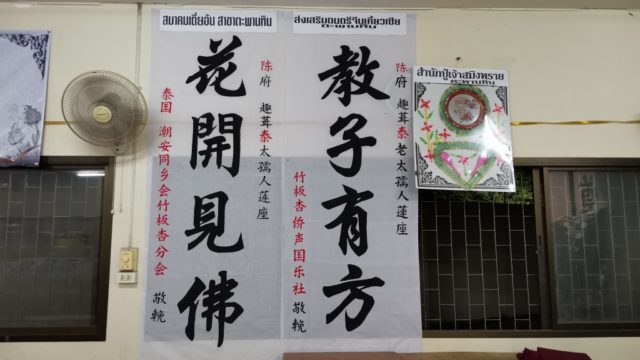 สมาคมเตี่ยอัน สาขาตะพานหิน
陈府 趣葺泰太孺人莲座
花開見佛
泰国 潮安同乡会竹板杏分会 敬輓
ส่งเสริมดนตรีจีนเคี่ยวเซีย
ตะพานหิน
陈府 趣葺泰老太孺人蓮座
教子有方
竹板杏侨声国乐社 敬輓
สำนักปู่เจ้าสมิงพราย
ตะพานหิน